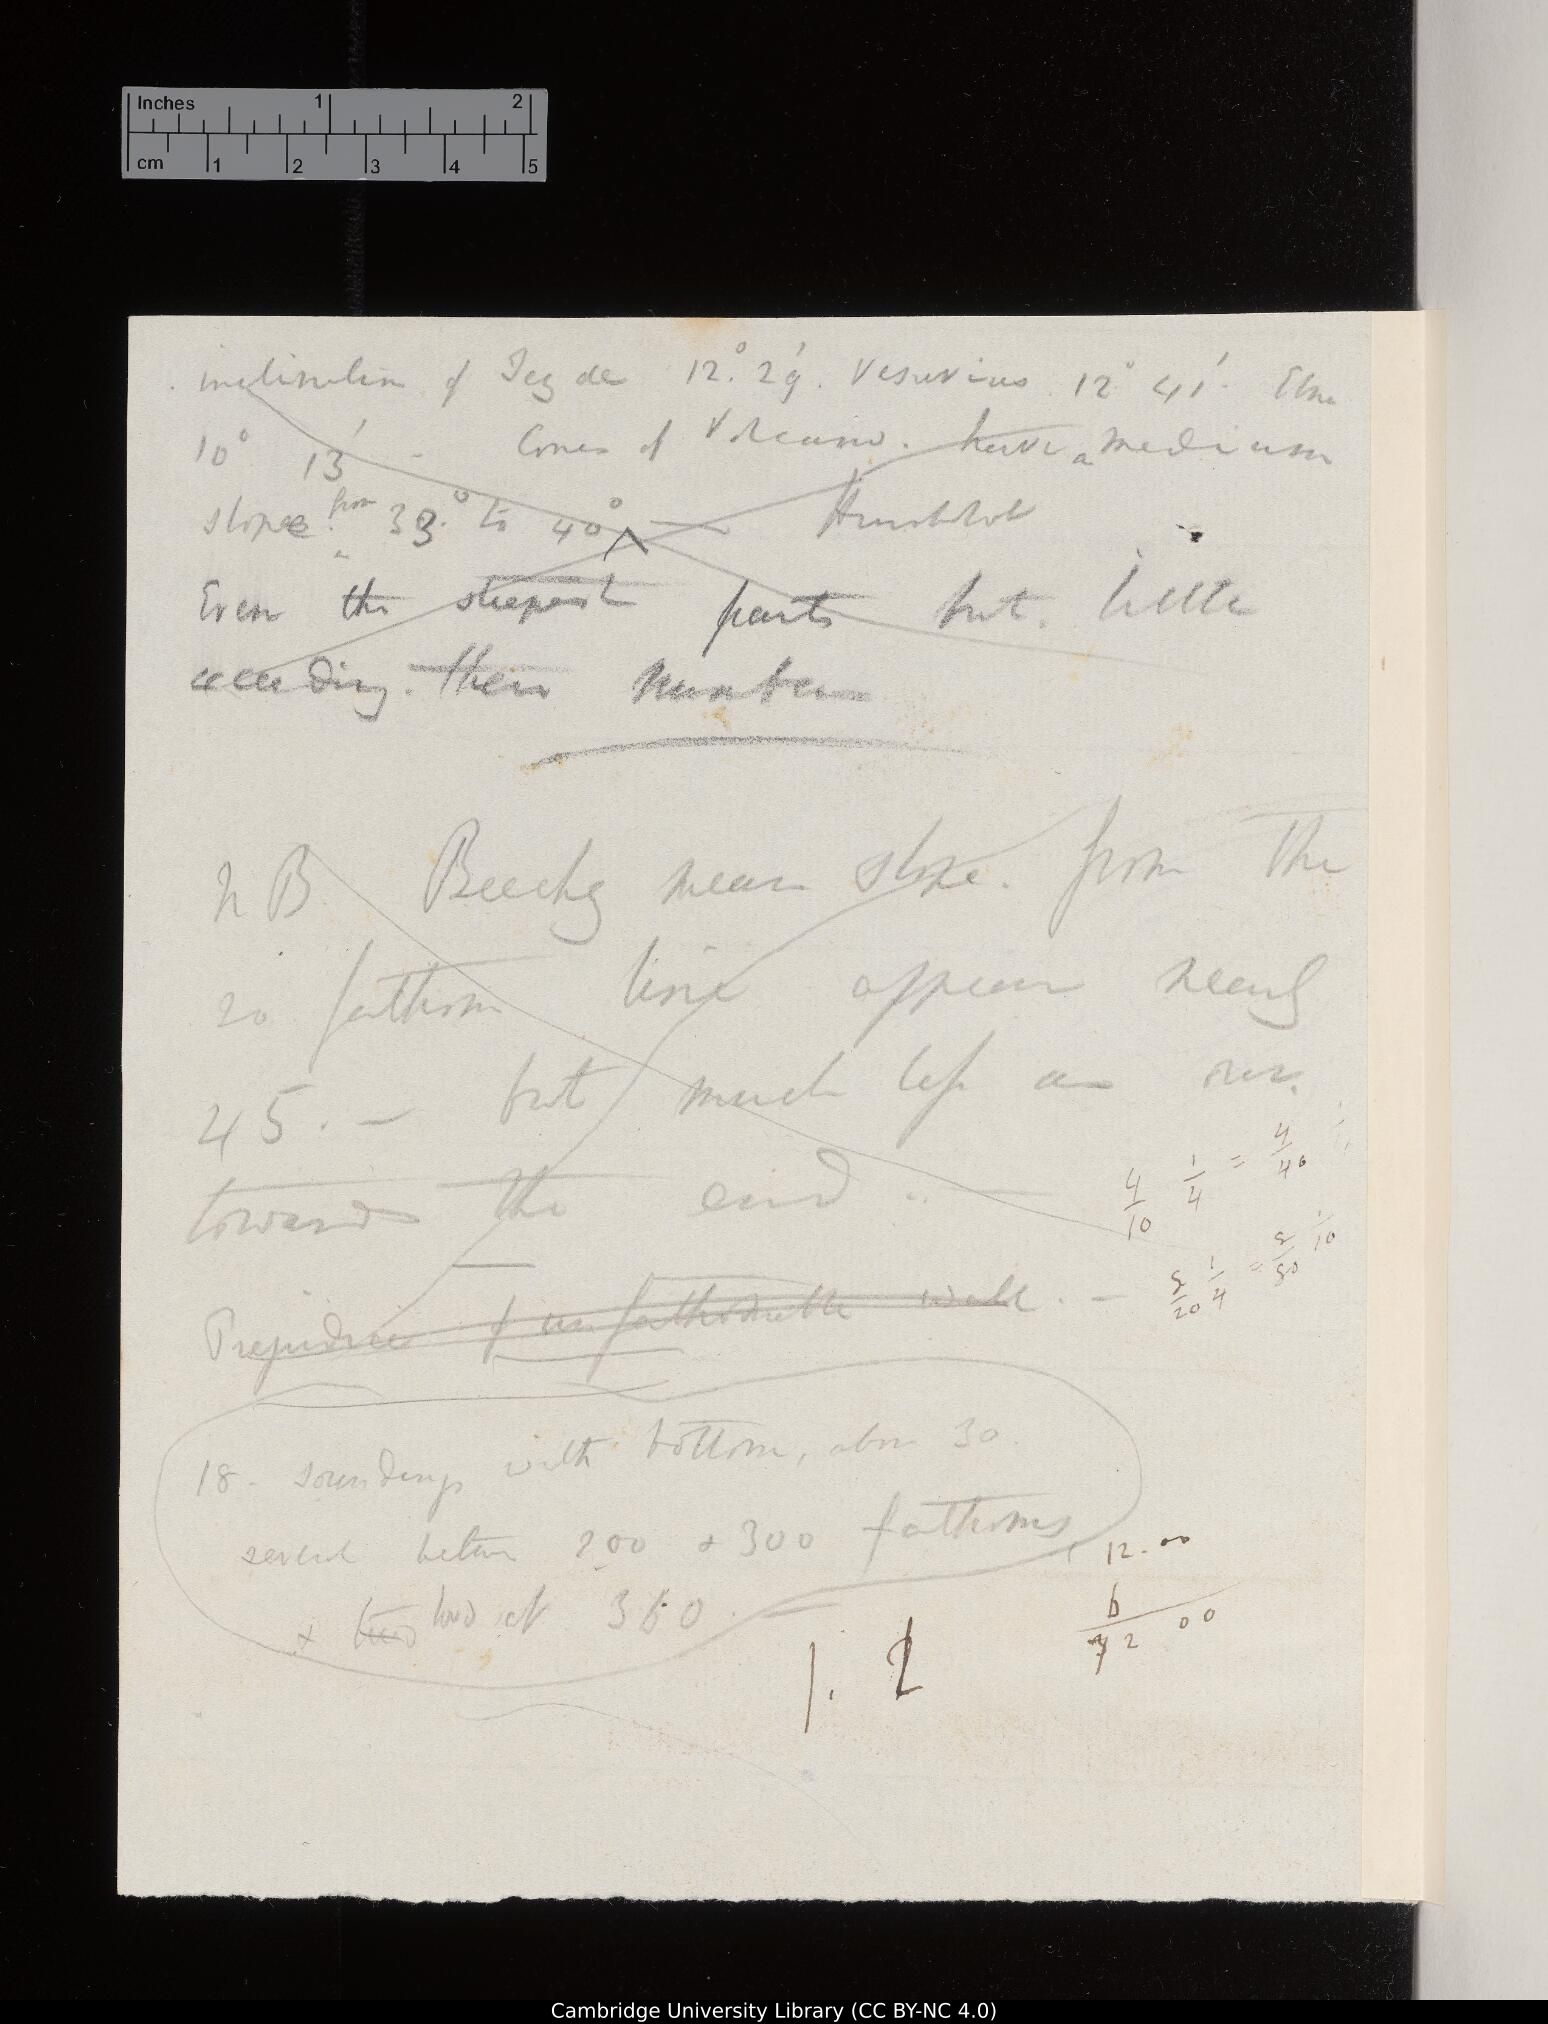 Inches 1 2
cm 1 2 3 4 5
inclination of Teyde 12°. 29'. Vesuvius 12° 41'. Etna
10° 13' - Cones of Volcano. have a medium
slope from 33° to 40° — Humboldt
Even the steepest parts but little
exceeding these number
NB Beechy mean slope. from the
20 fathom line appear nearly
45. — but much less as
towards the end —
Prejudice of unfathomable wall. —
4/10 1/4 = 4/40
1/10
5/20 1/4 =
18. soundings with bottom, above 30.
several between 200 & 300 fathoms
& two two at 360. —
12.00
6
72 00
1. 2
Cambridge University Library (CC BY-NC 4.0)